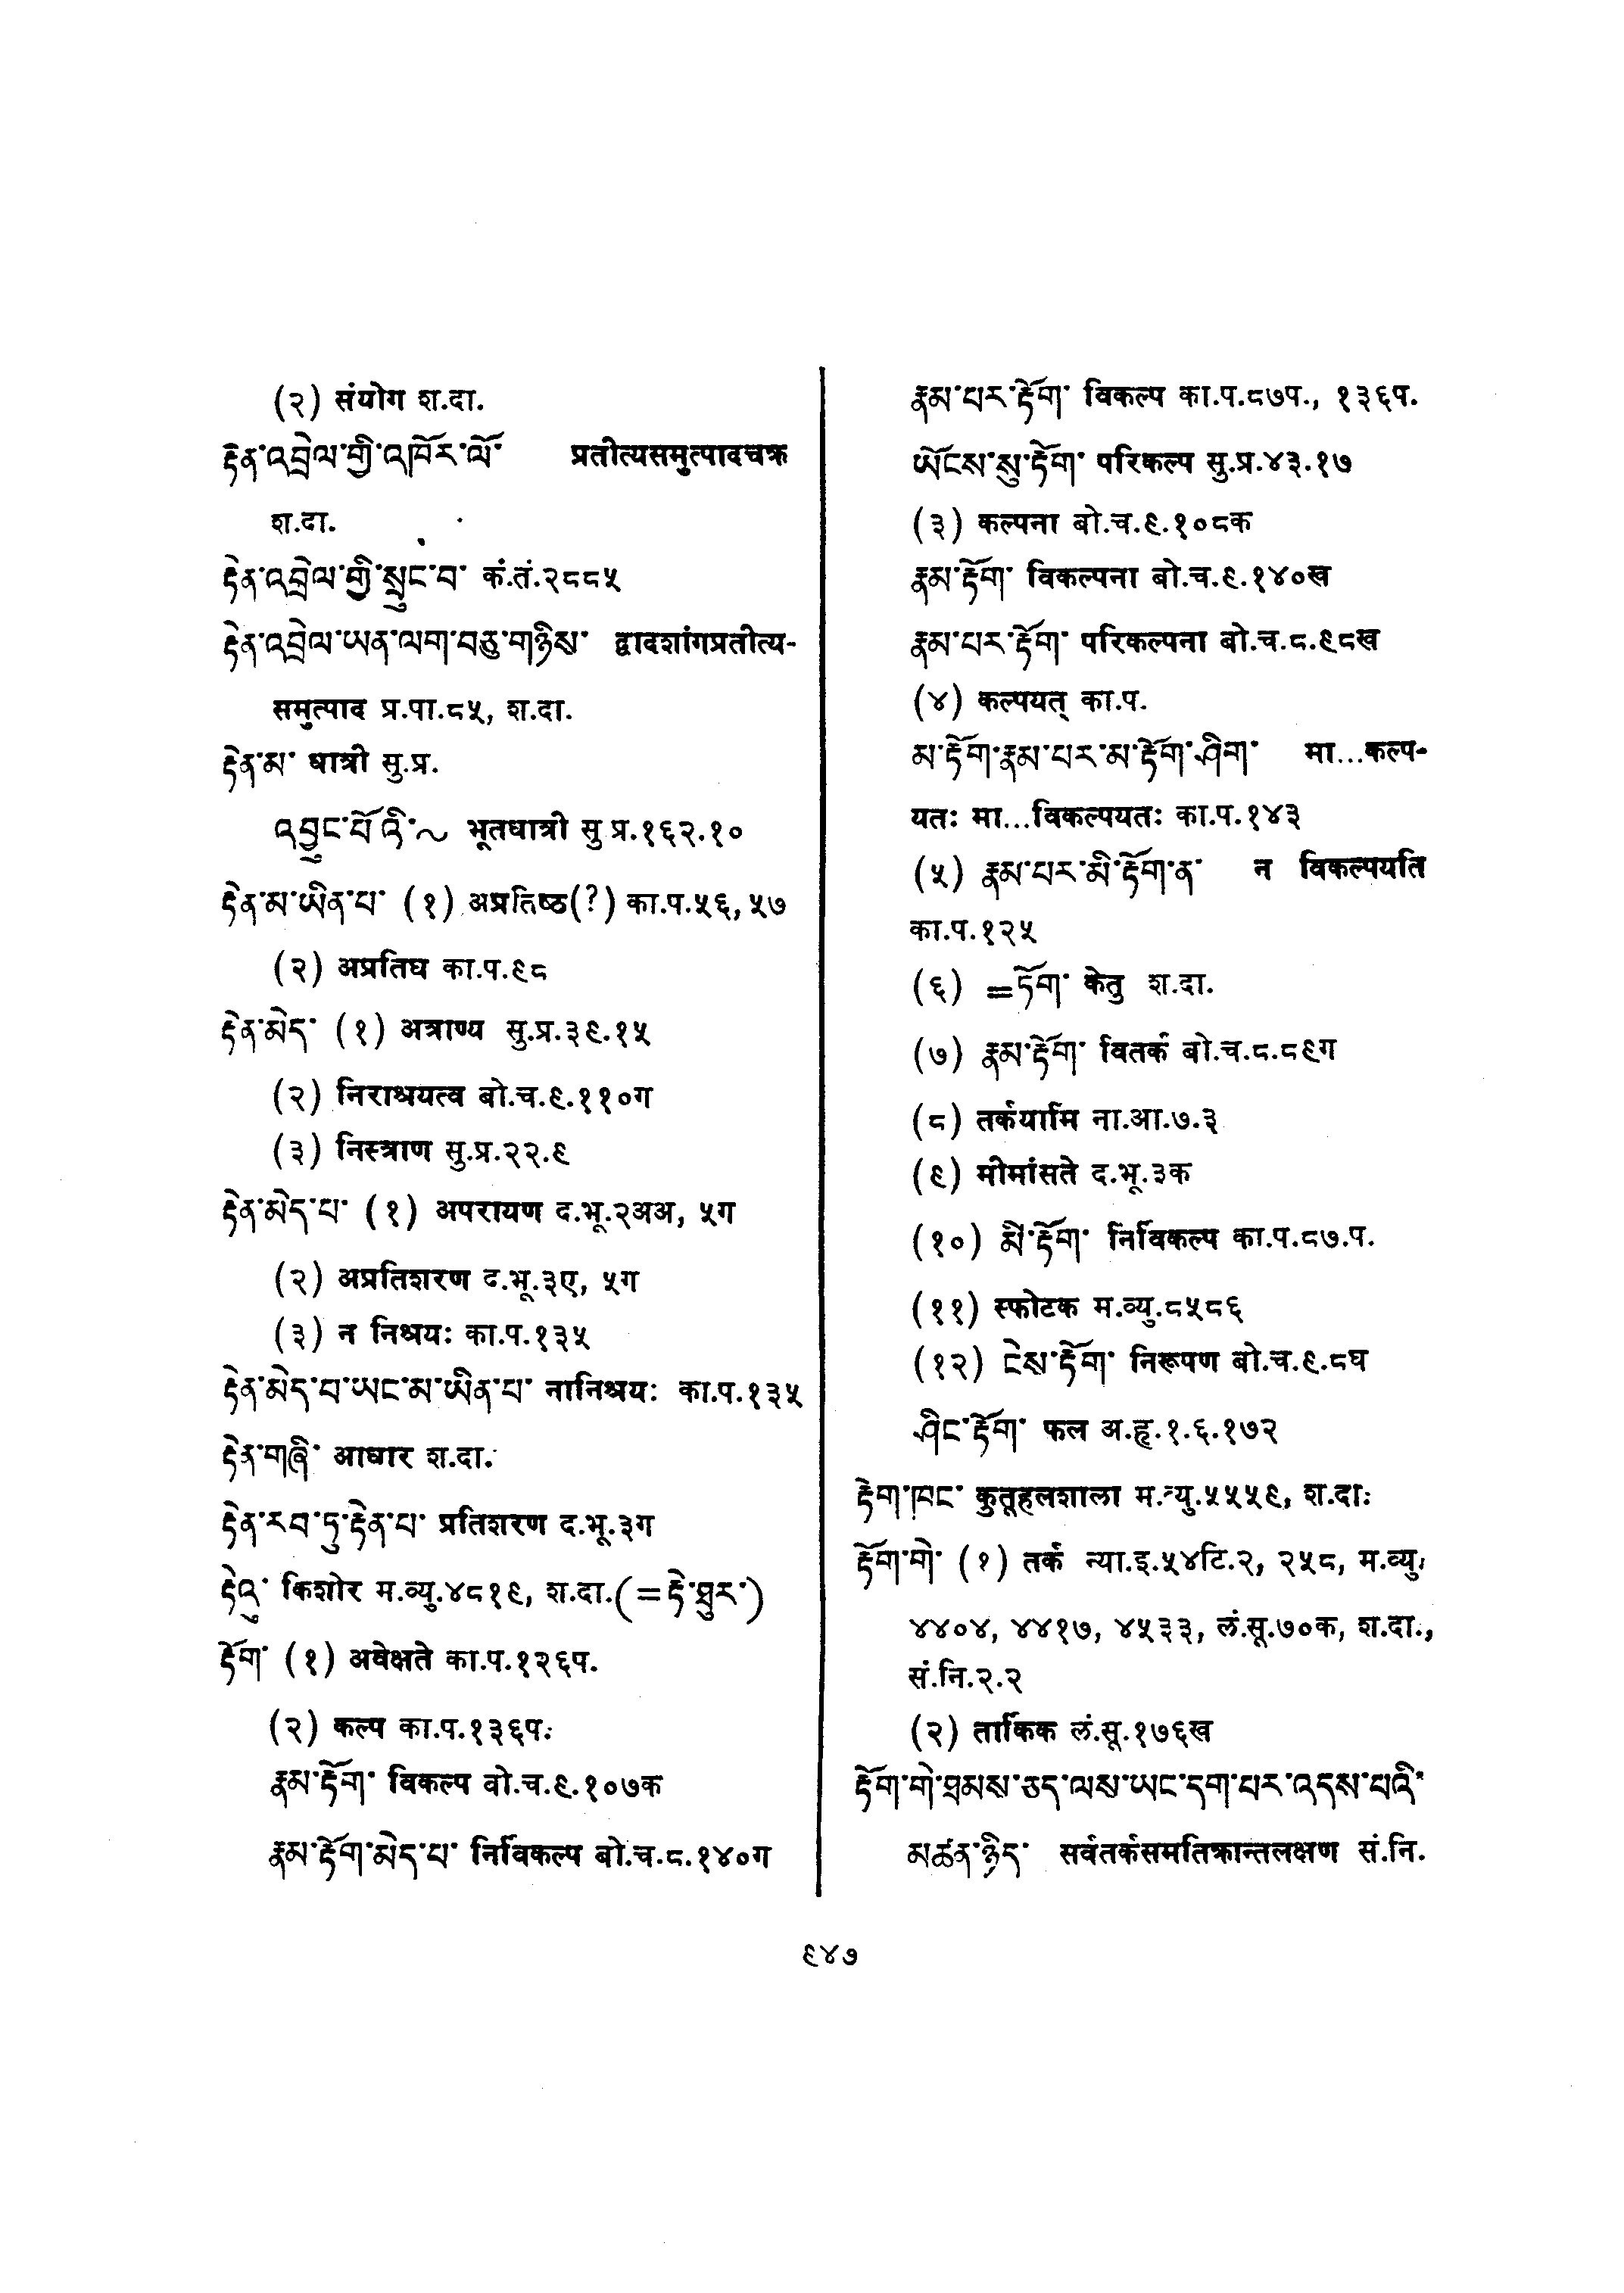 (२) संयोग श.दा.
རྟེན་འབྲེལ་གྱི་འཁོར་ལོ་ प्रतीत्यसमुत्पादचक्र
श.दा.
རྟེན་འབྲེལ་གྱི་སྲུང་བ་ कं.तं.२८८५
རྟེན་འབྲེལ་ཡན་ལག་བཅུ་གཉིས་ द्वादशांगप्रतीत्य-
समुत्पाद प्र.पा.८५, श.दा.
རྟེན་མ་ धात्री सु.प्र.
འབྱུང་པོའི་~ भूतधात्री सु प्र.१६२.१०
རྟེན་མ་ཡིན་པ་ (१) अप्रतिष्ठ(?) का.प.५६, ५७
(२) अप्रतिघ का.प.९८
རྟེན་མེད་ (१) अत्राण्य सु.प्र.३९.१५
(२) निराश्रयत्व बो.च.९.११०ग
(३) निस्त्राण सु.प्र.२२.९
རྟེན་མེད་པ་ (१) अपरायण द.भू.२अअ, ५ग
(२) अप्रतिशरण द.भू.३ए, ५ग
(३) न निश्रयः का.प.१३५
རྟེན་མེད་པ་ཡང་མ་ཡིན་པ་ नानिश्रयः का.प.१३५
རྟེན་གཞི་ आधार श.दा.
རྟེན་རབ་ཏུ་རྟེན་པ་ प्रतिशरण द.भू.३ग
རྟེའུ་ किशोर म.व्यु.४८१९, श.दा.(=རྟེ་ཐུར་)
རྟོག་ (१) अवेक्षते का.प.१२६प.
(२) कल्प का.प.१३६प.
རྣམ་རྟོག་ विकल्प बो.च.९.१०७क
རྣམ་རྟོག་མེད་པ་ निर्विकल्प बो.च.८.१४०ग
རྣམ་པར་རྟོག་ विकल्प का.प.८७प., १३६प.
ཡོངས་སུ་རྟོག་ परिकल्प सु.प्र.४३.१७
(३) कल्पना बो.च.९.१०८क
རྣམ་རྟོག་ विकल्पना बो.च.९.१४०ख
རྣམ་པར་རྟོག་ परिकल्पना बो.च.८.९८ख
(४) कल्पयत् का.प.
མ་རྟོག་རྣམ་པར་མ་རྟོག་ཤིག་ मा...कल्प-
यतः मा...विकल्पयतः का.प.१४३
(५) རྣམ་པར་མི་རྟོག་ན་ न विकल्पयति
का.प.१२५
(६) =ཏོག་ केतु श.दा.
(७) རྣམ་རྟོག་ वितर्क बो.च.८.८९ग
(८) तर्कयामि ना.आ.७.३
(९) मीमांसते द.भू.३क
(१०) མི་རྟོག་ निर्विकल्प का.प.८७.प.
(११) स्फोटक म.व्यु.८५८६
(१२) ངེས་རྟོག་ निरूपण बो.च.९.८घ
ཤིང་རྟོག་ फल अ.हृ.१.६.१७२
རྟེག་ཁང་ कुतूहलशाला म.व्यु.५५५९, श.दा.
རྟོག་གེ་ (१) तर्क न्या.इ.५४टि.२, २५८, म.व्यु.
४४०४, ४४१७, ४५३३, लं.सू.७०क, श.दा.,
सं.नि.२.२
(२) तार्किक लं.सू.१७६ख
རྟོག་གེ་ཐམས་ཅད་ལས་ཡང་དག་པར་འདས་པའི་
མཚན་ཉིད་ सर्वतर्कसमतिक्रान्तलक्षण सं.नि.
९४७